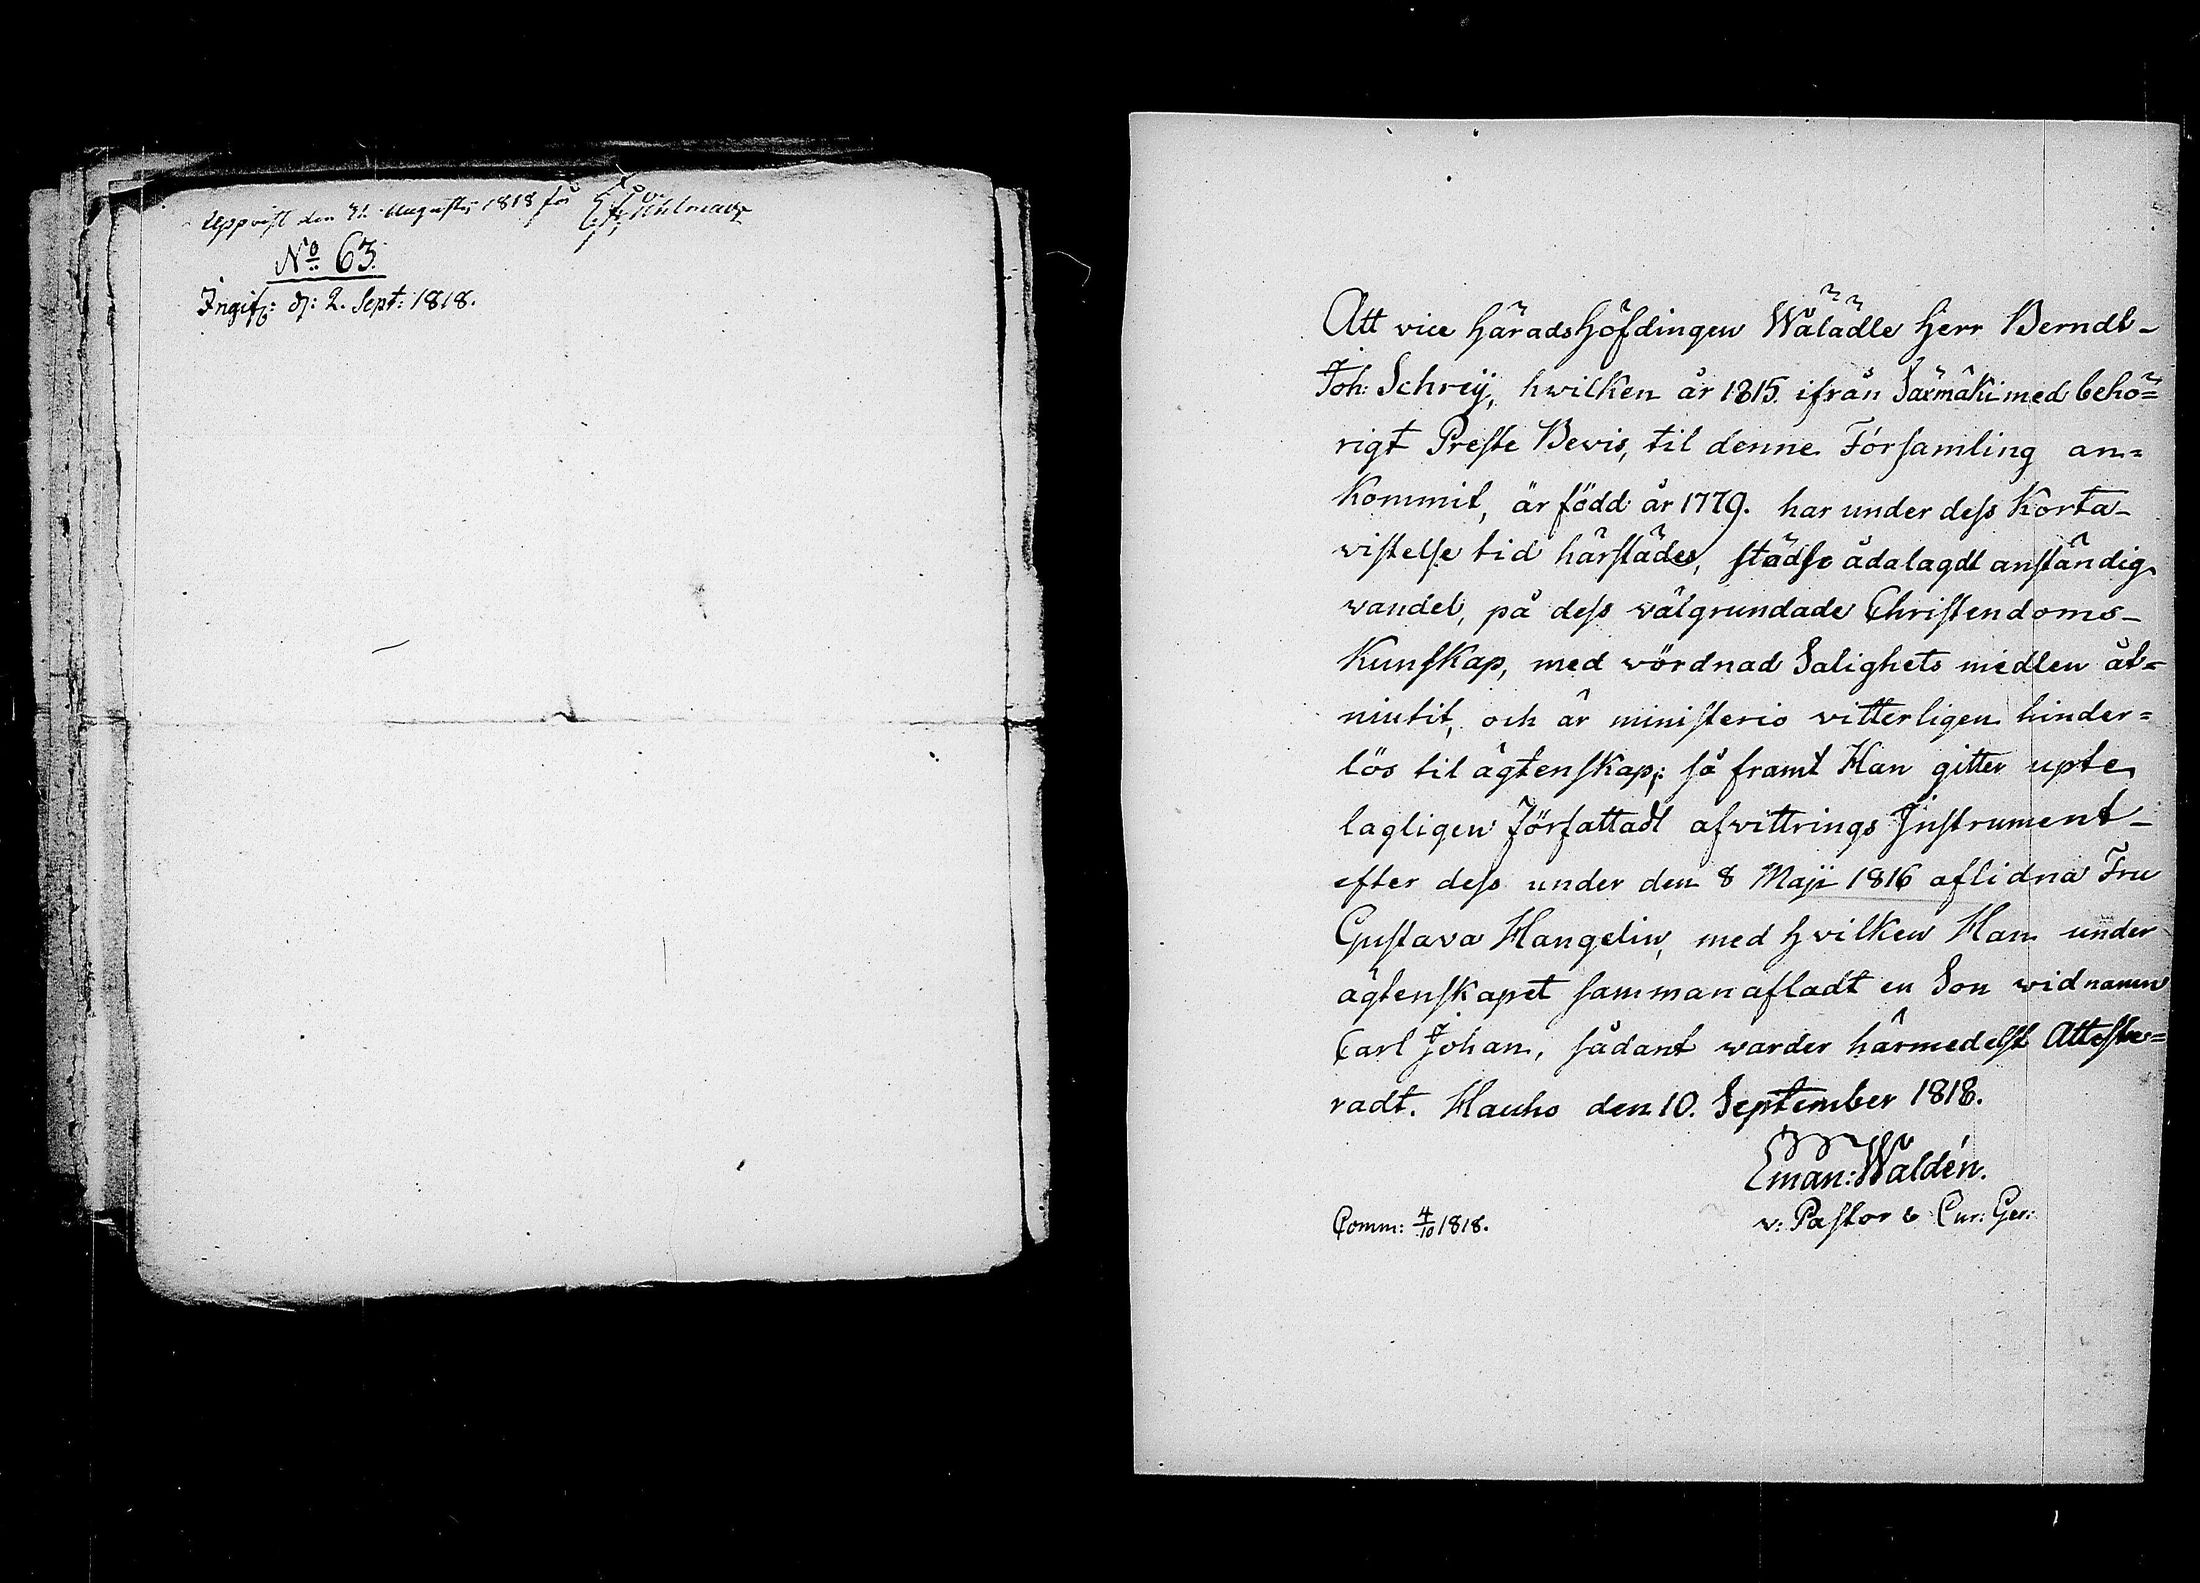 Uppvist den 31. Augusti, 1818 för
No 63.
Ingif: d: 2. Sept: 1818.
Att vice Häradshöfdingen Wälädle Herr Berndt-
Joh: Schreij, hwilken år 1815. ifrån med behö=
rigt Preste Bevis, til denne Församling an=
kommit, är född år 1779. har under dess korta
vistelse tid härstädes, städse ådalagdt anständig
vandel, på dess välgrundade Christendoms-
Kunskap, med vördnad Salighets medlen åt=
niutit, och är ministerio vitterligen hinder=
lös til ägtenskap; så framt Han gitter upte
lagligen författadt afvittrings Instrument-
efter dess under den 8 Maji 1816 aflidna Fru
Gustava Hangelin, med hvilken Han under
ägtenskapet sammanafladt en Son wid namn
Carl Johan, sådant warder härmedelst Atteste=
radt. Hauho den 10. September 1818.
Eman: Waldén.
v: Pastor & Cur: Ger:
Comm: 4/10 1818.